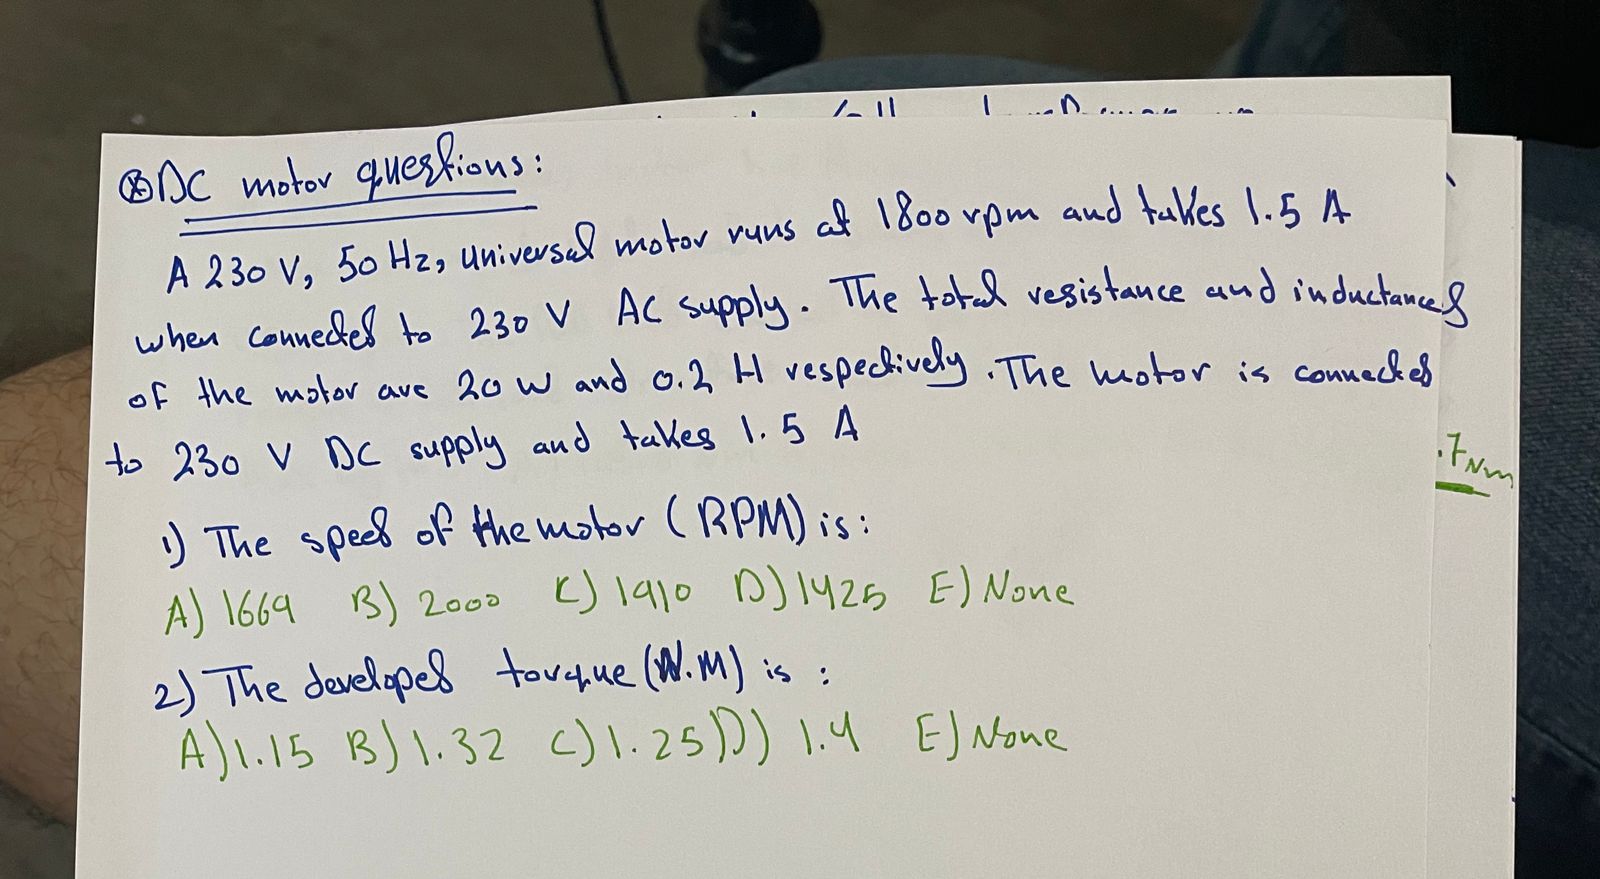 ⊗ DC motor questions:
A 230 V, 50 Hz, universal motor runs at 1800 rpm and takes 1.5 A
when connected to 230 V AC supply. The total resistance and inductances
of the motor are 20 W and 0.2 H respectively. The motor is connected
to 230 V DC supply and takes 1.5 A
.7 Nm
1) The speed of the motor (RPM) is:
A) 1669 B) 2000 C) 1910 D) 1425 E) None
2) The developed torque (N.M) is:
A) 1.15 B) 1.32 C) 1.25 D) 1.4 E) None